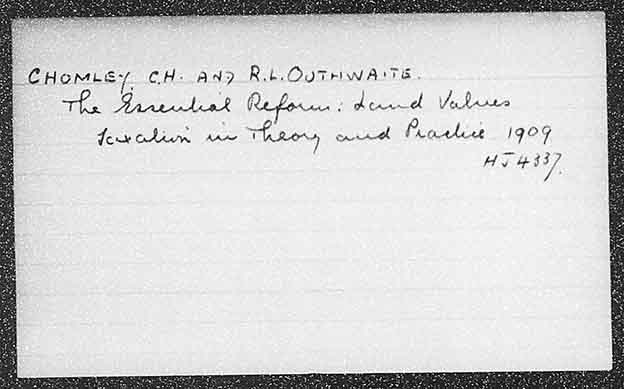 CHOMLEY C.H. AND R.L. OUTHWAITE.
The Essential Reform: Land Values
Taxation in Theory and Practice 1909
HJ4337.